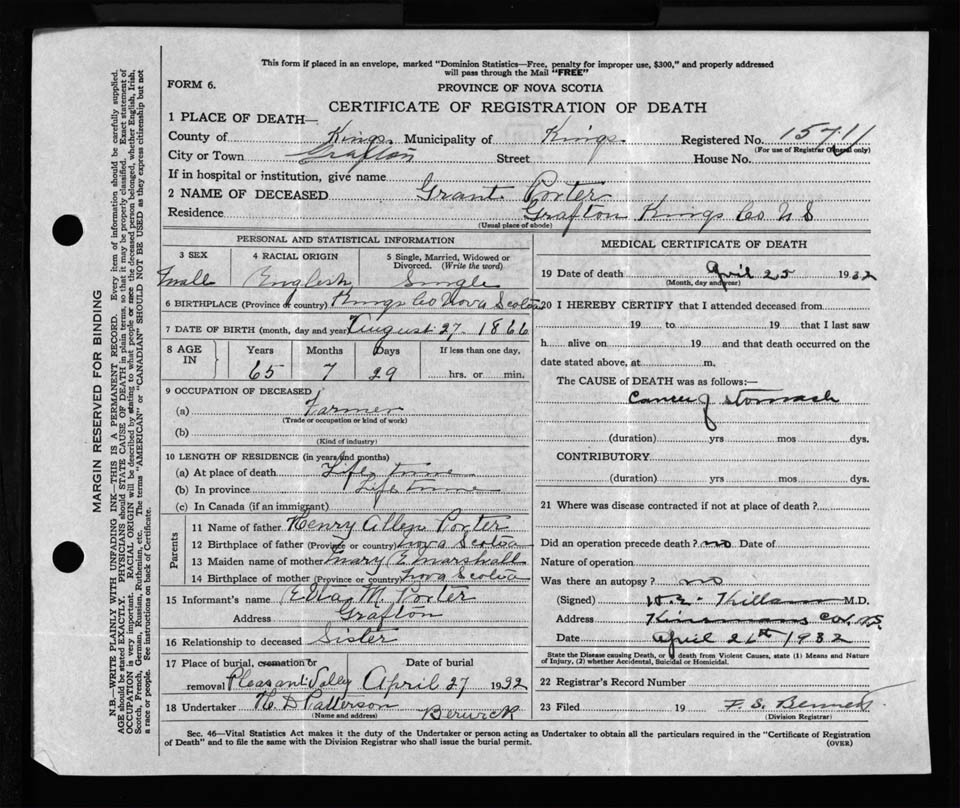 This form if placed in an envelope, marked "Dominion Statistics—Free, penalty for improper use, $300," and properly addressed
will pass through the Mail "FREE"
FORM 6.
PROVINCE OF NOVA SCOTIA
CERTIFICATE OF REGISTRATION OF DEATH
1 PLACE OF DEATH—
County of Kings Municipality of Kings Registered No.
(For use of Registrar General only)
City or Town Grafton Street House No.
If in hospital or institution, give name
2 NAME OF DECEASED Grant Porter
Residence Grafton Kings Co N S
(Usual place of abode)
PERSONAL AND STATISTICAL INFORMATION
3 SEX 4 RACIAL ORIGIN 5 Single, Married, Widowed or Divorced. (Write the word)
English Single
6 BIRTHPLACE (Province or country) Kings Co Nova Scotia
7 DATE OF BIRTH (month, day and year) August 27 1866
8 AGE IN Years Months Days If less than one day,
65 7 29 hrs. or min.
9 OCCUPATION OF DECEASED
(a) Farmer
(Trade or occupation or kind of work)
(b)
(Kind of industry)
10 LENGTH OF RESIDENCE (in years and months)
(a) At place of death Life time
(b) In province Life time
(c) In Canada (if an immigrant)
Parents
11 Name of father Henry Allen Porter
12 Birthplace of father (Province or country) Nova Scotia
13 Maiden name of mother Mary E Marshall
14 Birthplace of mother (Province or country) Nova Scotia
15 Informant's name Ella M Porter
Address Grafton
16 Relationship to deceased Sister
17 Place of burial, cremation or removal Pleasant Valley Date of burial April 27 1932
18 Undertaker H. D Patterson Berwick
(Name and address)
MEDICAL CERTIFICATE OF DEATH
19 Date of death April 25 1932
(Month, day and year)
20 I HEREBY CERTIFY that I attended deceased from
19 to 19 that I last saw
h alive on 19 and that death occurred on the
date stated above, at m.
The CAUSE of DEATH was as follows:—
Cancer of stomach
(duration) yrs mos dys.
CONTRIBUTORY
(duration) yrs mos dys.
21 Where was disease contracted if not at place of death?
Did an operation precede death? no Date of
Nature of operation
Was there an autopsy? no
(Signed) Killam M.D.
Address Kinsmans Cor. N.S.
Date April 26th 1932
State the Disease causing Death, or death from Violent Causes, state (1) Means and Nature
of Injury, (2) whether Accidental, Suicidal or Homicidal.
22 Registrar's Record Number
23 Filed 19 F. S. Bennett
(Division Registrar)
Sec. 46—Vital Statistics Act makes it the duty of the Undertaker or person acting as Undertaker to obtain all the particulars required in the "Certificate of Registration
of Death" and to file the same with the Division Registrar who shall issue the burial permit.
(OVER)
MARGIN RESERVED FOR BINDING
N.B.—WRITE PLAINLY WITH UNFADING INK—THIS IS A PERMANENT RECORD. Every item of information should be carefully supplied.
AGE should be stated EXACTLY. PHYSICIANS should STATE CAUSE OF DEATH in plain terms, so that it may be properly classified. Exact statement of
OCCUPATION is very important. RACIAL ORIGIN will be described by stating to what people or race the deceased person belonged, whether English, Irish,
Scotch, French, German, Russian, Ruthenian, etc. The terms "AMERICAN" or "CANADIAN" SHOULD NOT BE USED as they express citizenship but not
a race or people. See instructions on back of Certificate.